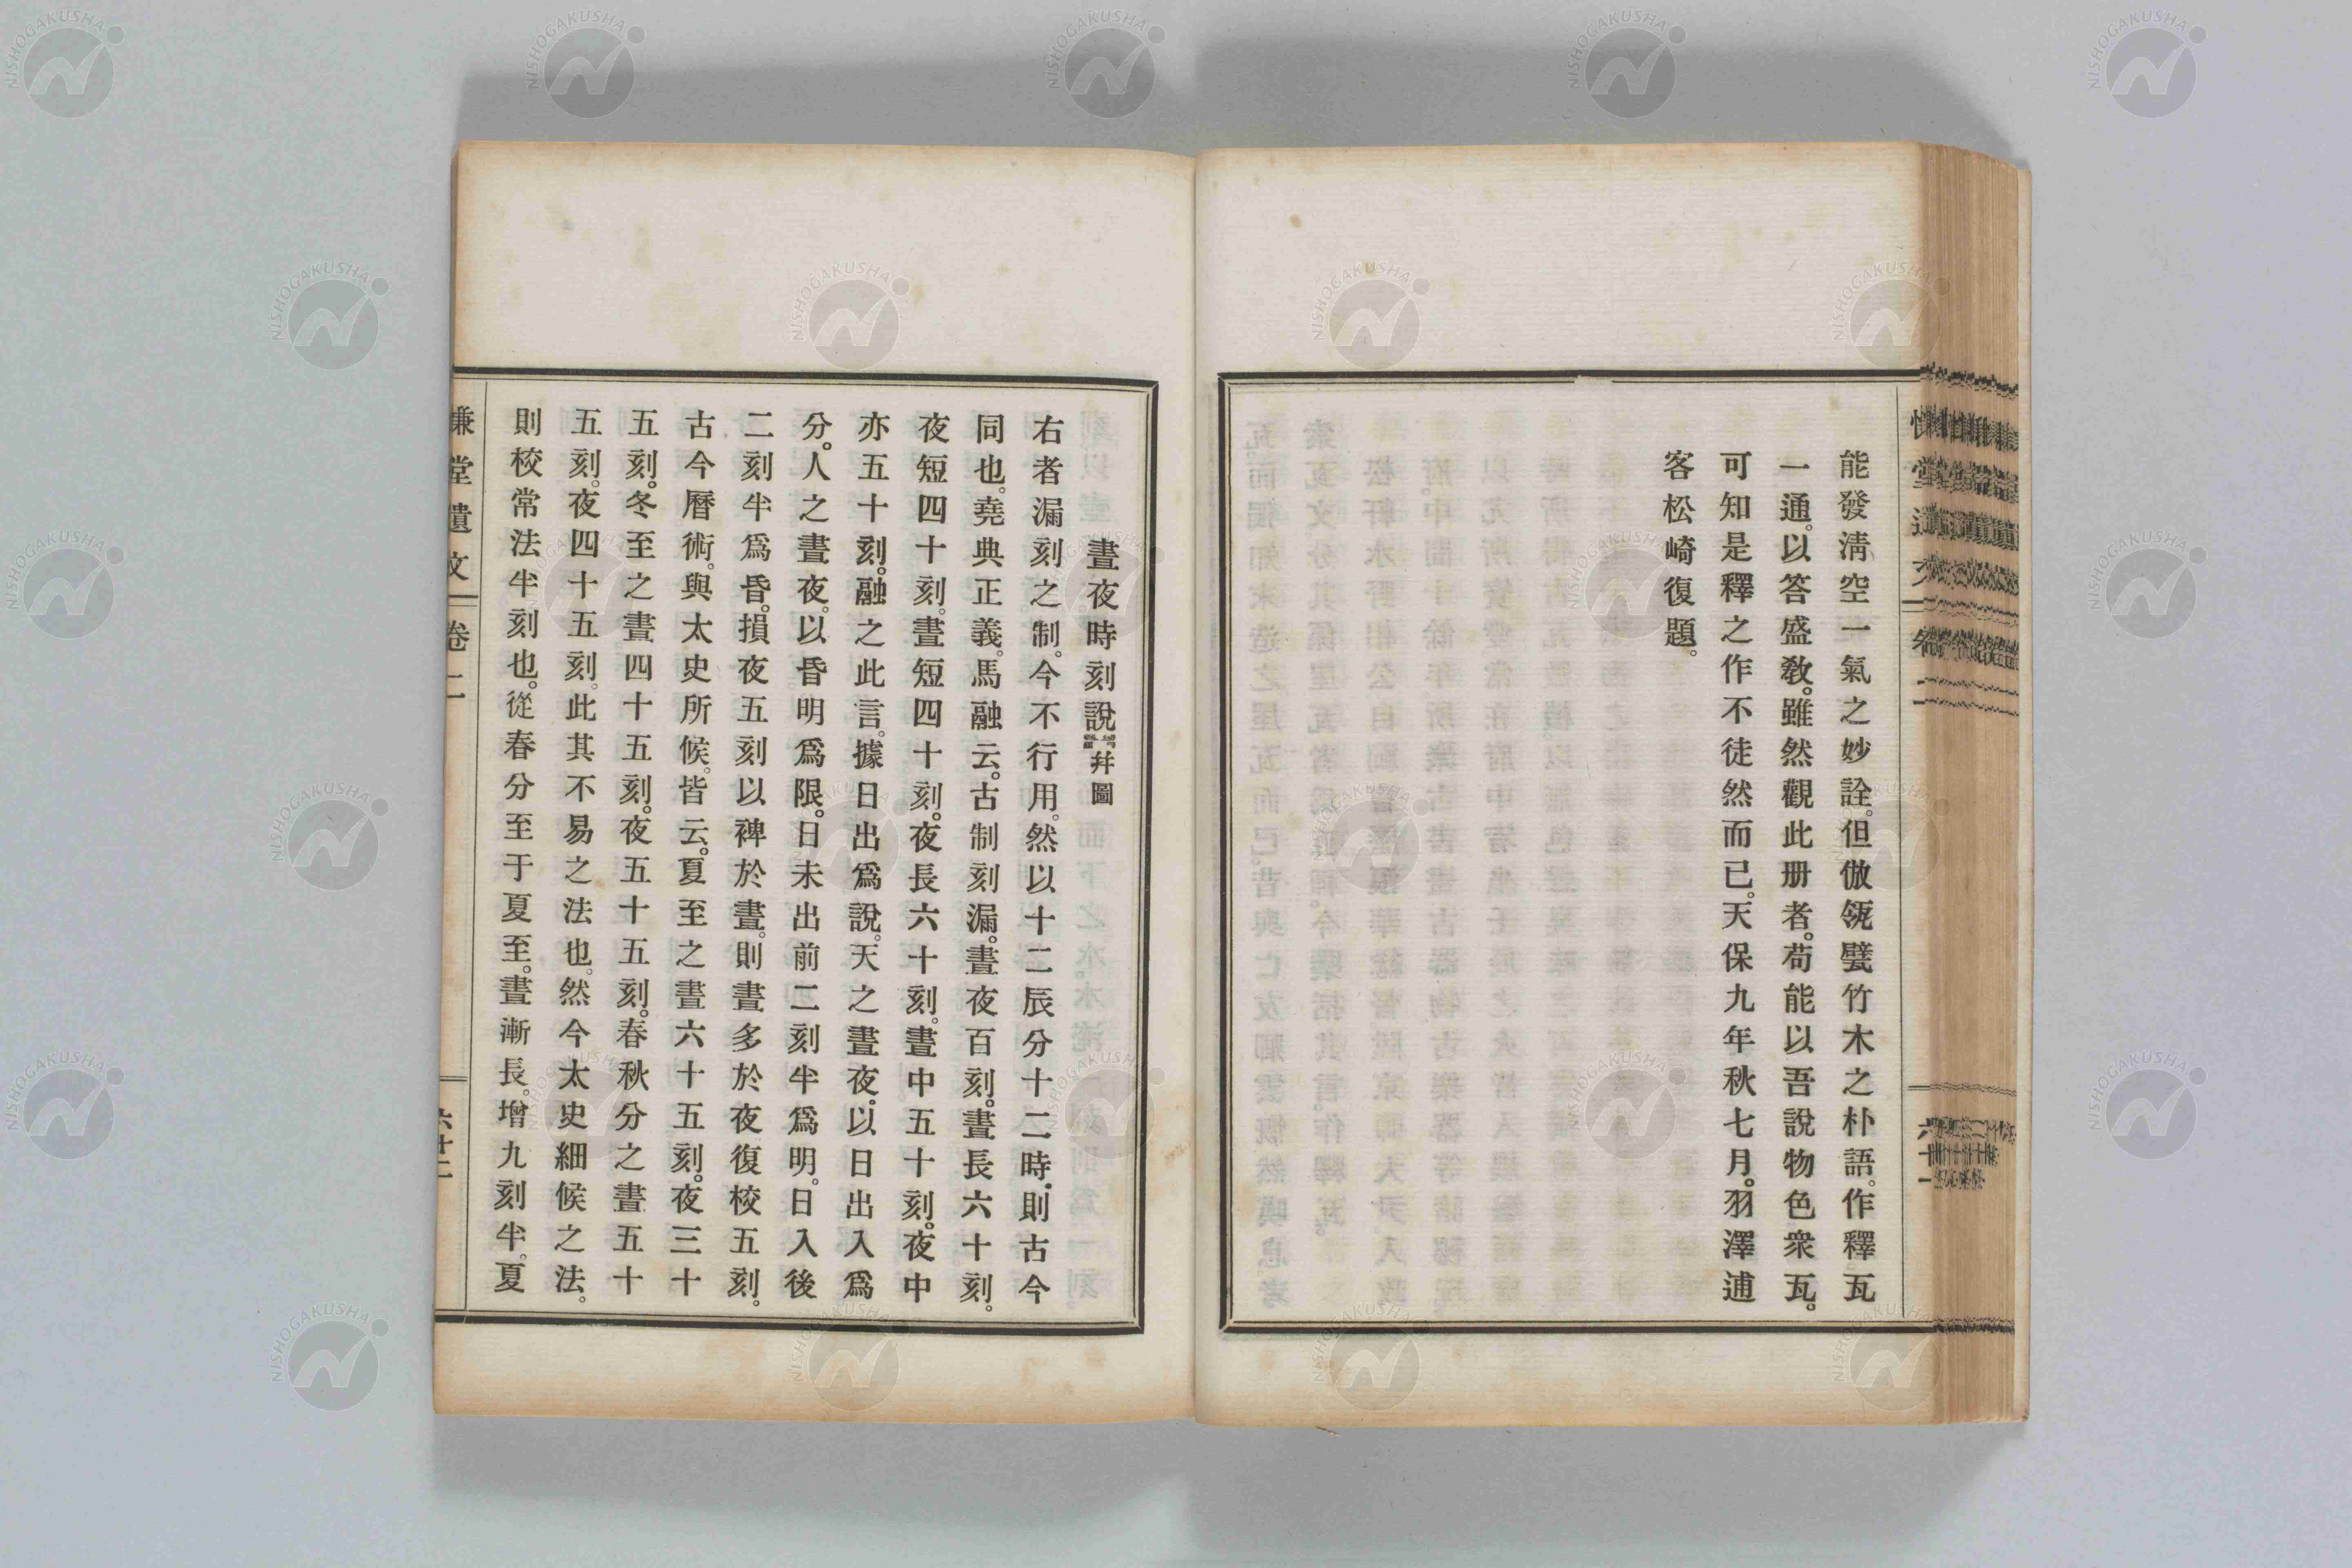 能發淸空一氣之妙詮。但倣瓴甓竹木之朴語。作釋瓦
一通。以答盛敎。雖然觀此册者。苟能以吾說物色衆瓦。
可知是釋之作不徒然而已。天保九年秋七月。羽澤逋
客松崎復題。
晝夜時刻說幷圖
右者漏刻之制。今不行用。然以十二辰分十二時。則古今
同也。堯典正義。馬融云。古制刻漏。晝夜百刻。晝長六十刻。
夜短四十刻。晝短四十刻。夜長六十刻。晝中五十刻。夜中
亦五十刻。融之此言。據日出爲說。天之晝夜。以日出入爲
分。人之晝夜。以昏明爲限。日未出前二刻半爲明。日入後
二刻半爲昏。損夜五刻以裨於晝。則晝多於夜復校五刻。
古今曆術。與太史所候。皆云。夏至之晝六十五刻。夜三十
五刻。冬至之晝四十五刻。夜五十五刻。春秋分之晝五十
五刻。夜四十五刻。此其不易之法也。然今太史細候之法。
則校常法半刻也。從春分至于夏至。晝漸長。增九刻半。夏
慊堂遺文 卷二 六十二
NISHOGAKUSHA